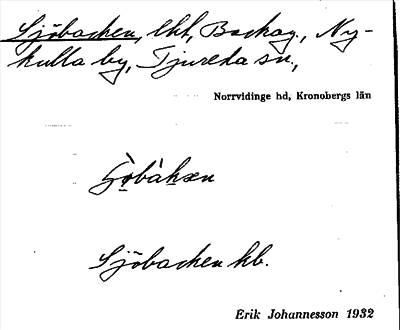 Sjöbacken, lht, Backag., Ny-
kulla by, Tjureda sn.,
Norrvidinge hd, Kronobergs län
Sjöbacken kb.
Erik Johannesson 1932